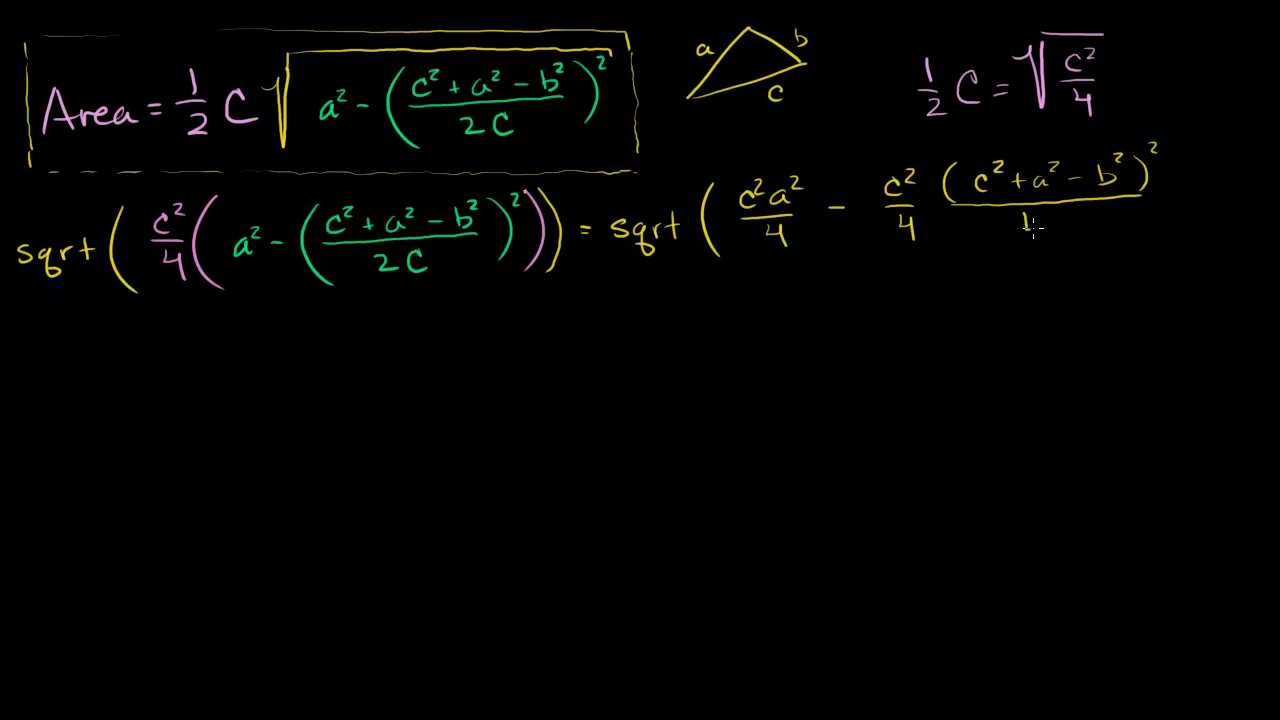 Area = 1/2 C √(a² - ((c² + a² - b²)/(2C))²)
a b
c
1/2 C = √(c²/4)
sqrt (c²/4 (a² - ((c² + a² - b²)/(2C))²)) = sqrt (c²a²/4 - c²/4 (c² + a² - b²)²/